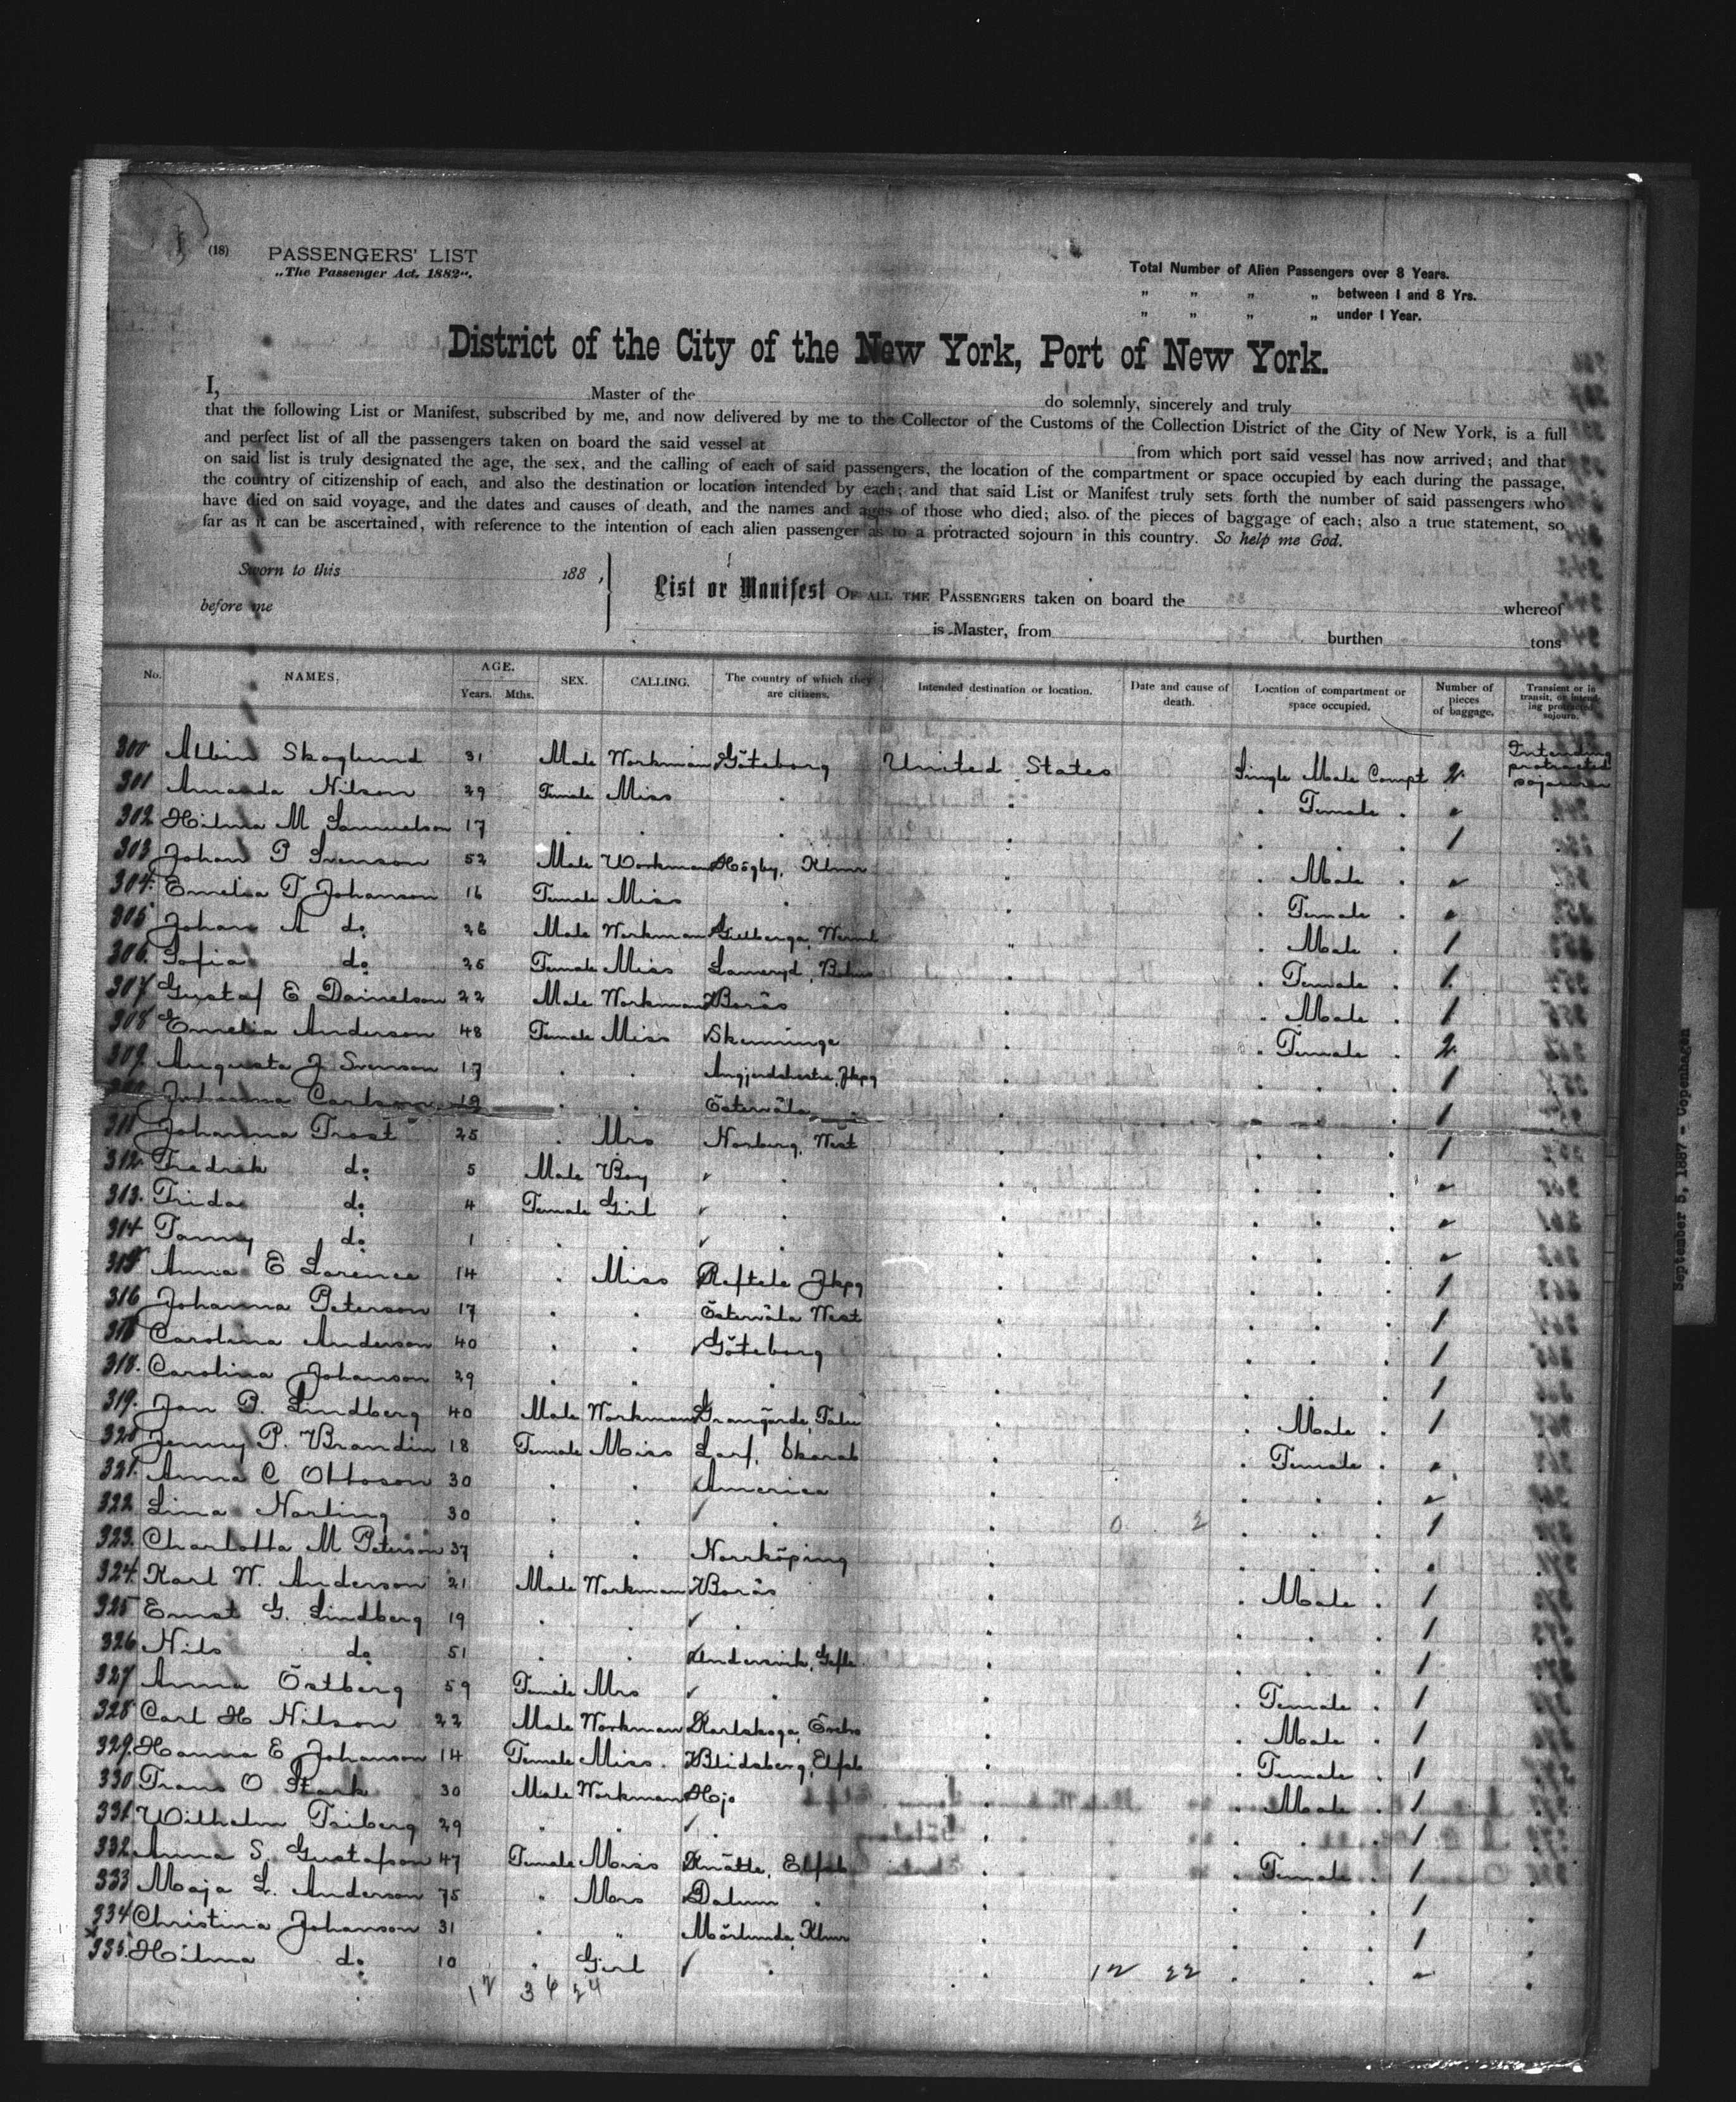 (18) PASSENGERS' LIST
„The Passenger Act, 1882".
Total Number of Alien Passengers over 8 Years.
„ „ „ „ between 1 and 8 Yrs.
„ „ „ „ under 1 Year.
District of the City of the New York, Port of New York.
I, Master of the do solemnly, sincerely and truly
that the following List or Manifest, subscribed by me, and now delivered by me to the Collector of the Customs of the Collection District of the City of New York, is a full
and perfect list of all the passengers taken on board the said vessel at from which port said vessel has now arrived; and that
on said list is truly designated the age, the sex, and the calling of each of said passengers, the location of the compartment or space occupied by each during the passage,
the country of citizenship of each, and also the destination or location intended by each; and that said List or Manifest truly sets forth the number of said passengers who
have died on said voyage, and the dates and causes of death, and the names and ages of those who died; also. of the pieces of baggage of each; also a true statement, so
far as it can be ascertained, with reference to the intention of each alien passenger as to a protracted sojourn in this country. So help me God.
Sworn to this 188 ,
before me
List or Manifest OF ALL THE PASSENGERS taken on board the whereof
is Master, from burthen tons
No. NAMES. AGE. Years. Mths. SEX. CALLING. The country of which they are citizens. Intended destination or location. Date and cause of death. Location of compartment or space occupied. Number of pieces of baggage. Transient or in transit, or intending protracted sojourn.
300 Albin Skoglund 31 Male Workman Göteborg United States Single Male Compt 2 Intending protracted sojourn
301 Amanda Nilson 29 Female Miss . . . Female .
302 Hilma M Samuelson 17 . . . . . . . 1
303 Johan P Svenson 52 Male Workman Högby, Klmr . . Male .
304. Emelia T Johanson 16 Female Miss . . . Female .
305 Johan A do 26 Male Workman Gillberga, Werml . . Male . 1
306. Sofia do 25 Female Miss Laneryd, Bohus . . Female . 1
307 Gustaf E Danielson 22 Male Workman Borås . . Male . 1
308 Emelia Anderson 48 Female Miss Skenninge . . Female . 2
309. Augusta J Svenson 17 . . Jkpg . . . . 1
Johanna Carlson 19 . . Östervåla . . . . 1
311 Johanna Trost 25 . Mrs Norberg, West . . . . 1
312 Fredrik do 5 Male Boy . . . . .
313. Frida do 4 Female Girl . . . . .
314 Fanny do 1 . . . . . . .
315 Anna E Lorence 14 . Miss Reftele Jkpg . . . . 1
316 Johanna Peterson 17 . . Östervåla West . . . . 1
Carolina Anderson 40 . . Göteborg . . . . 1
318. Carolina Johanson 29 . . . . . . . 1
319. Jan P. Lindberg 40 Male Workman Grangärde, Falu . . Male . 1
320 Jenny P. Brandin 18 Female Miss Larf, Skarab . . Female .
321. Anna C Ottoson 30 . . America . . . .
322 Lina Norling 30 . . . . 0 2 . . . 1
323. Charlotta M Peterson 37 . . Norrköping . . . .
324. Karl W. Anderson 21 Male Workman Borås . . Male . 1
325 Ernst G. Lindberg 19 . . . . . . . 1
326 Nils do 51 . . Undersvik, Gefle . . . . 1
327 Anna Östberg 59 Female Mrs . . . Female . 1
328 Carl H Nilson 22 Male Workman Karlskoga, Örebro . . Male . 1
329. Hanna E Johanson 14 Female Miss. Blidsberg, Elfsb . . Female . 1
330 Frans O Stark 30 Male Workman Hjo . . Male . 1
331 Wilhelm Friberg 29 . . . . . . . 1
332 Anna S. Gustafson 47 Female Miss Knätte, Elfsb . . Female . 1
333 Maja L. Anderson 75 . Mrs Dalum . . . . . 1
334 Christina Johanson 31 . . Mörlunda, Klmr . . . . 1
335. Hilma do 10 . Girl . . 12 22 . . .
12 34 24
September 5, 1887 - Copenhagen